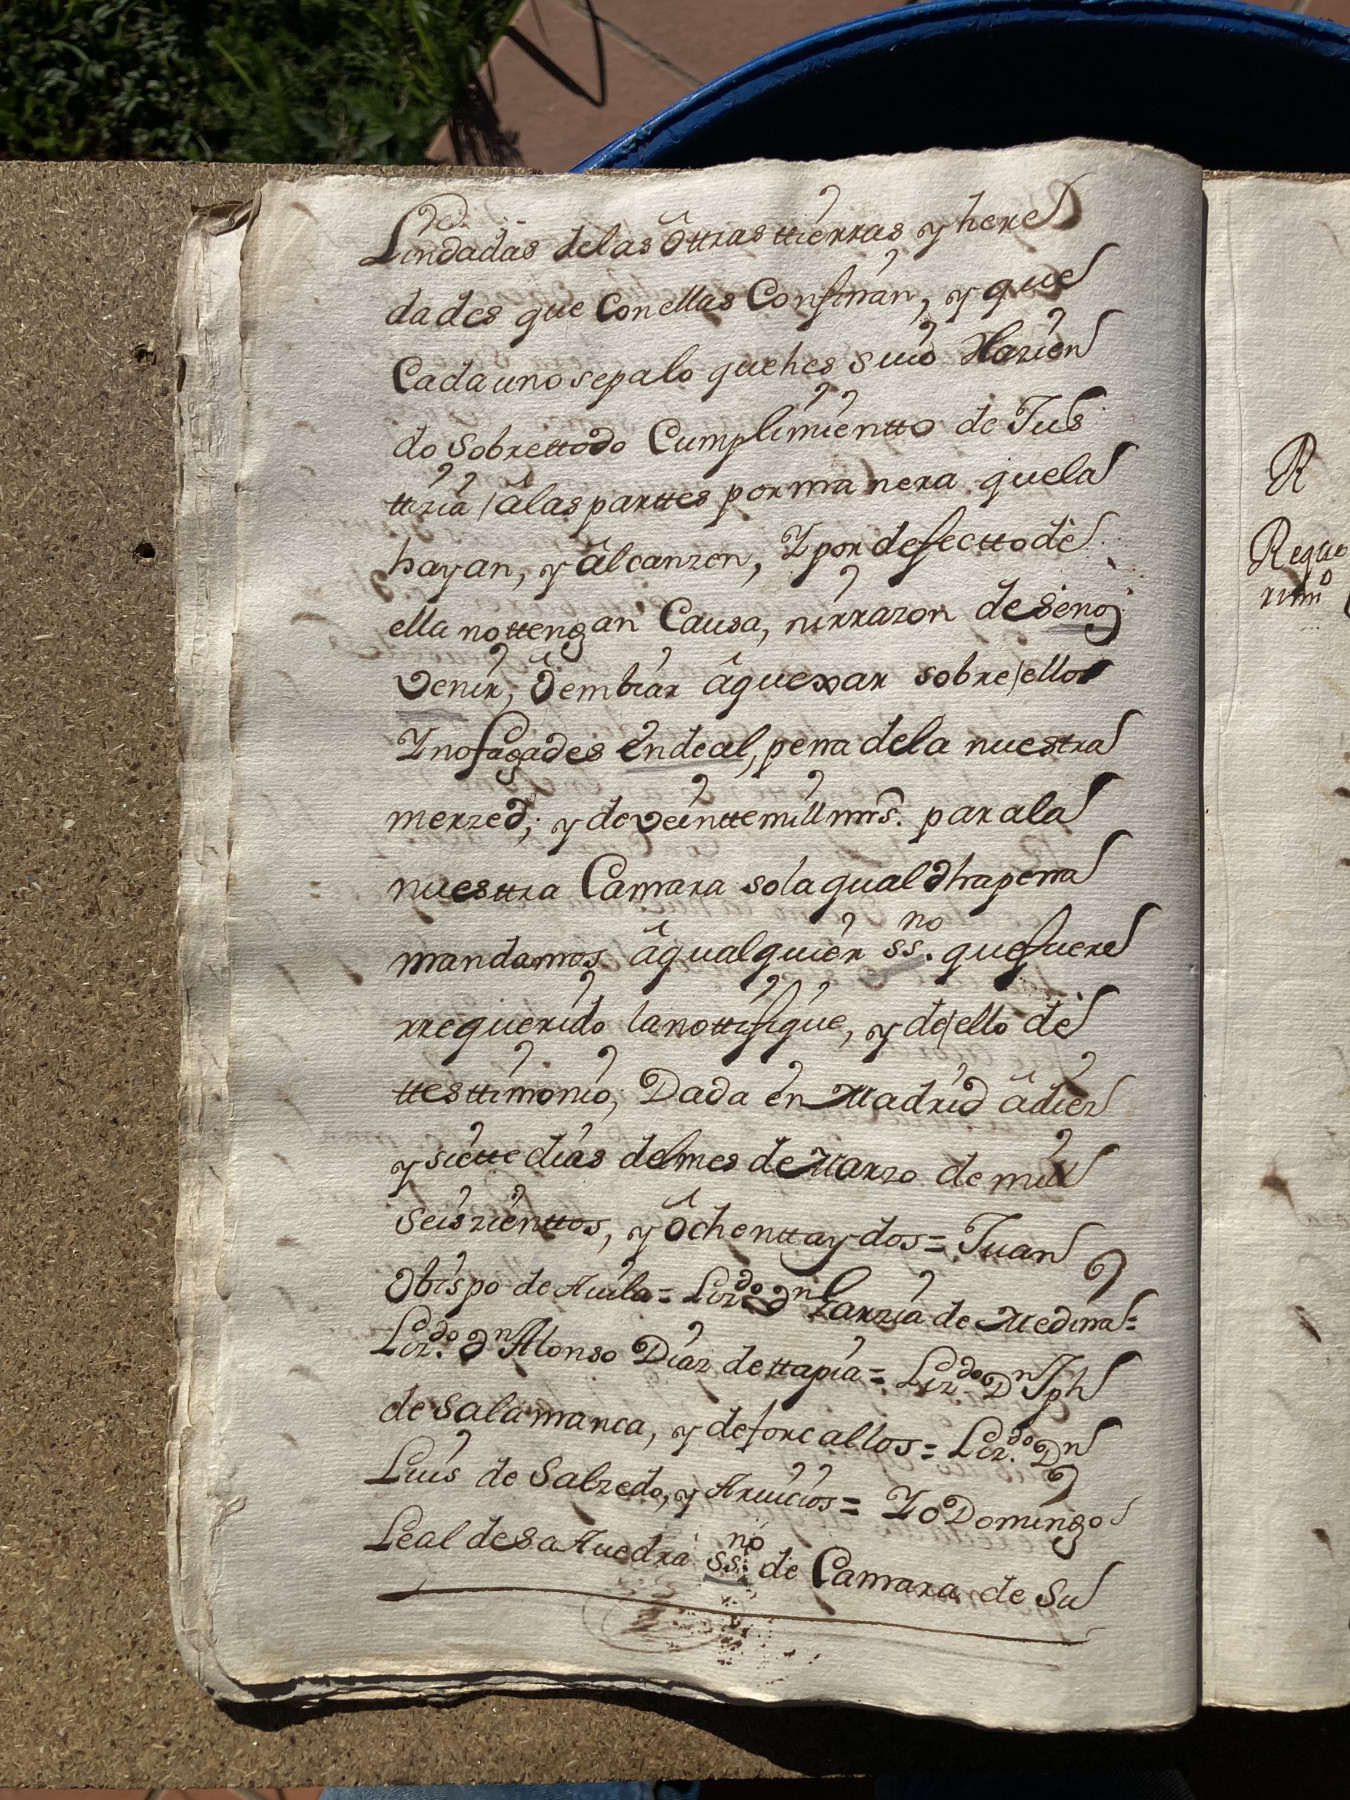 Lindadas de las ôttras ttierras y here
dades que Con ellas Confinan, y que
Cada uno sepa lo que hes suio Hazien
do sobre ttodo Cumplimientto de Jus
ttizia / â las parttes por manera que la
hayan, y âlcanzen, Y por defectto de
ella no ttengan Causa, nirrazon de seno
venir, ô embiar âquexar sobre / ello
Y no fagades êndeal, pena de la nuestra
merzed; y de veintte mill mrs. para la
nuesttra Camara so la qual dha pena
mandamos â qualquier ss.no que fuere
rrequerido la nottifique, y de / ello de
ttesttimonio, Dada en Madrid â diez
y siette dias del mes de Marzo de mill
seiszienttos, y ôchentta y dos = Juan
Obispo de Auila = Liz.do Dn Garzia de Medina =
Liz.do Dn Alonso Diaz de ttapia = Liz.do Dn Jph
de Salamanca, y de forcallos = Liz.do Dn
Luis de Salzedo, y Aruicios = Yo Domingo
Leal de saAuedra ss.no de Camara de Su
R
Reque
rimto